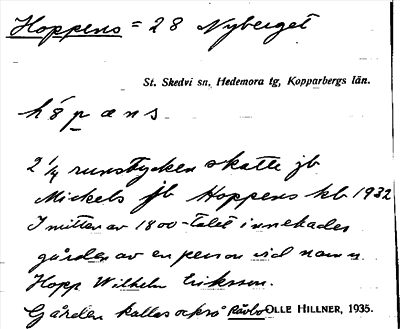 Hoppens = 28 Nyberget
St. Skedvi sn, Hedemora tg, Kopparbergs län.
h 8́ p æ n s
2 1/4 runstycken skatte jb
Mickels jb Hoppens kb 1932
I mitten av 1800-talet innehades
gården av en person vid namn
Hopp Wilhelm Eriksson.
Gården kallas också Råvlo OLLE HILLNER, 1935.